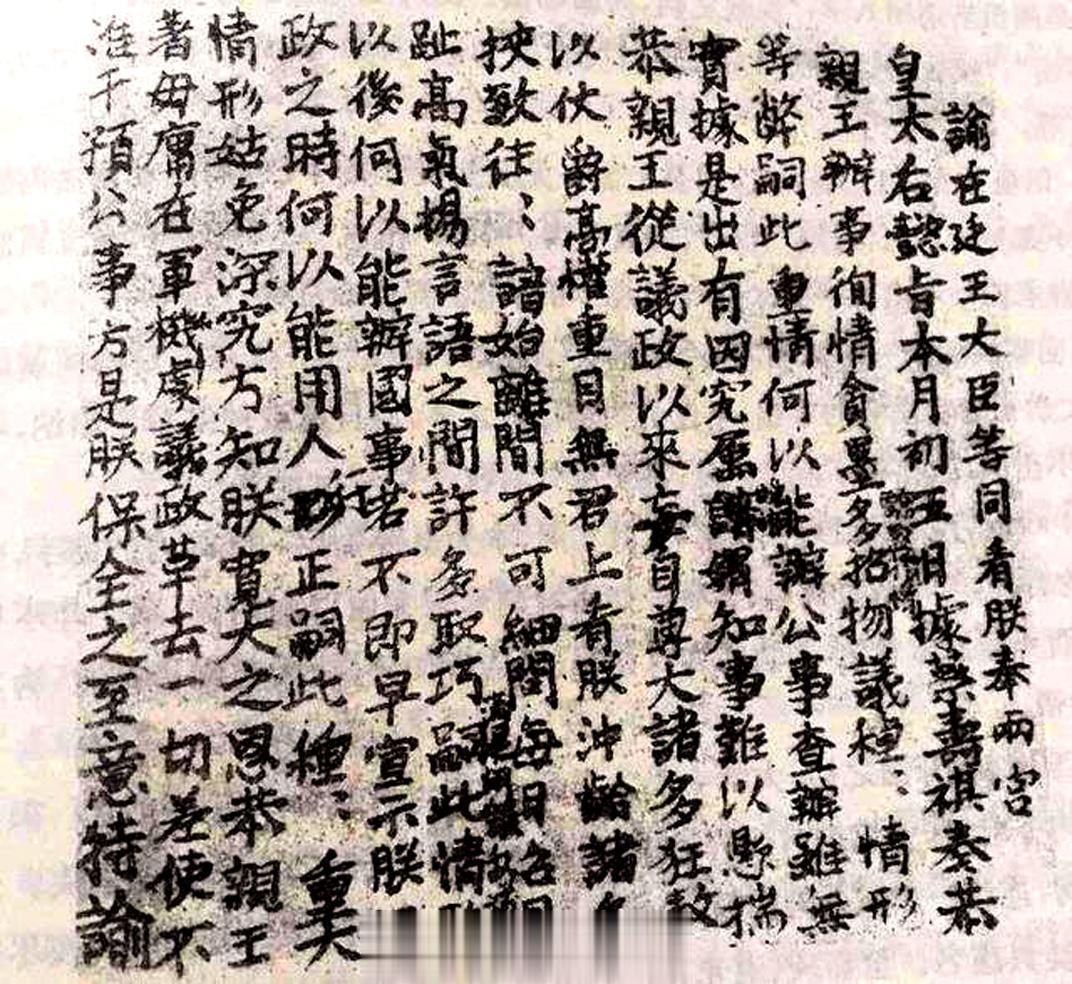 諭在廷王大臣等同看朕奉兩宮
皇太后懿旨本月初五日據蔡壽祺奏恭
親王辦事徇情貪墨多招物議種：情形
等弊嗣此重情何以能辦公事查辦雖無
實據是出有因究屬知事難以懸揣
恭親王從議政以來妄自尊大諸多狂敖
以仗爵高權重目無君上看朕沖齡諸
挾致往：諳始離間不可細問每日召
趾高氣揚言語之間許多取巧嗣此情
以後何以能辦國事若不即早宣示朕
政之時何以能用人行正嗣此種：重大
情形姑免深究方知朕寬大之恩恭親王
著毋庸在軍機處議政革去一切差使不
准干預公事方是朕保全之至意特諭